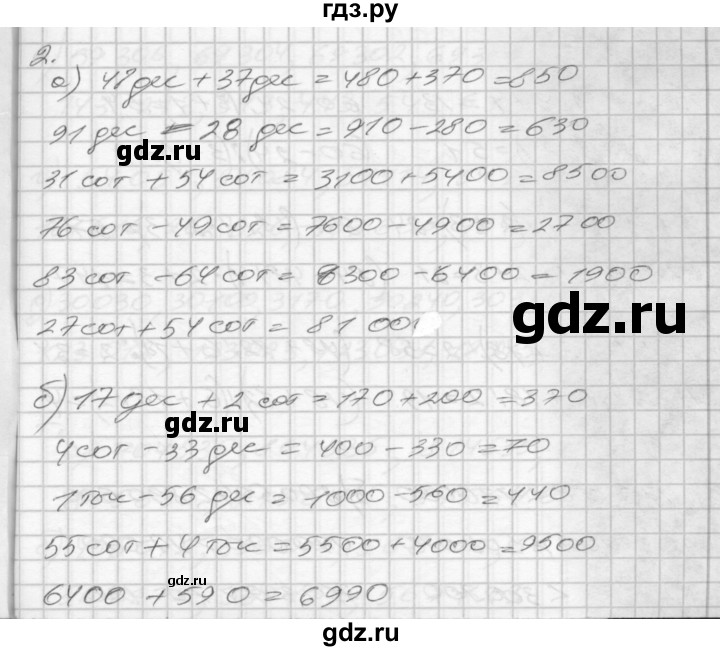 гдз.ру
2.
а) 48дес + 37дес = 480+370 =850
91 дес - 28 дес = 910-280 = 630
gdz.ru
31 сот + 54 сот = 3100+5400 =8500
76 сот - 49 сот = 7600-4900 = 2700
83 сот - 64 сот = 8300 - 6400 = 1900
gdz.ru
27 сот + 54 сот = 81
б) 17 дес + 2 сот = 170+200 =370
gdz.ru
4 сот - 33 дес = 400 - 330 = 70
1 тыс - 56 дес = 1000-560 = 440
55 сот + 4 тыс = 5500+4000 =9500
gdz.ru
6400 + 590 = 6990
gdz.ru